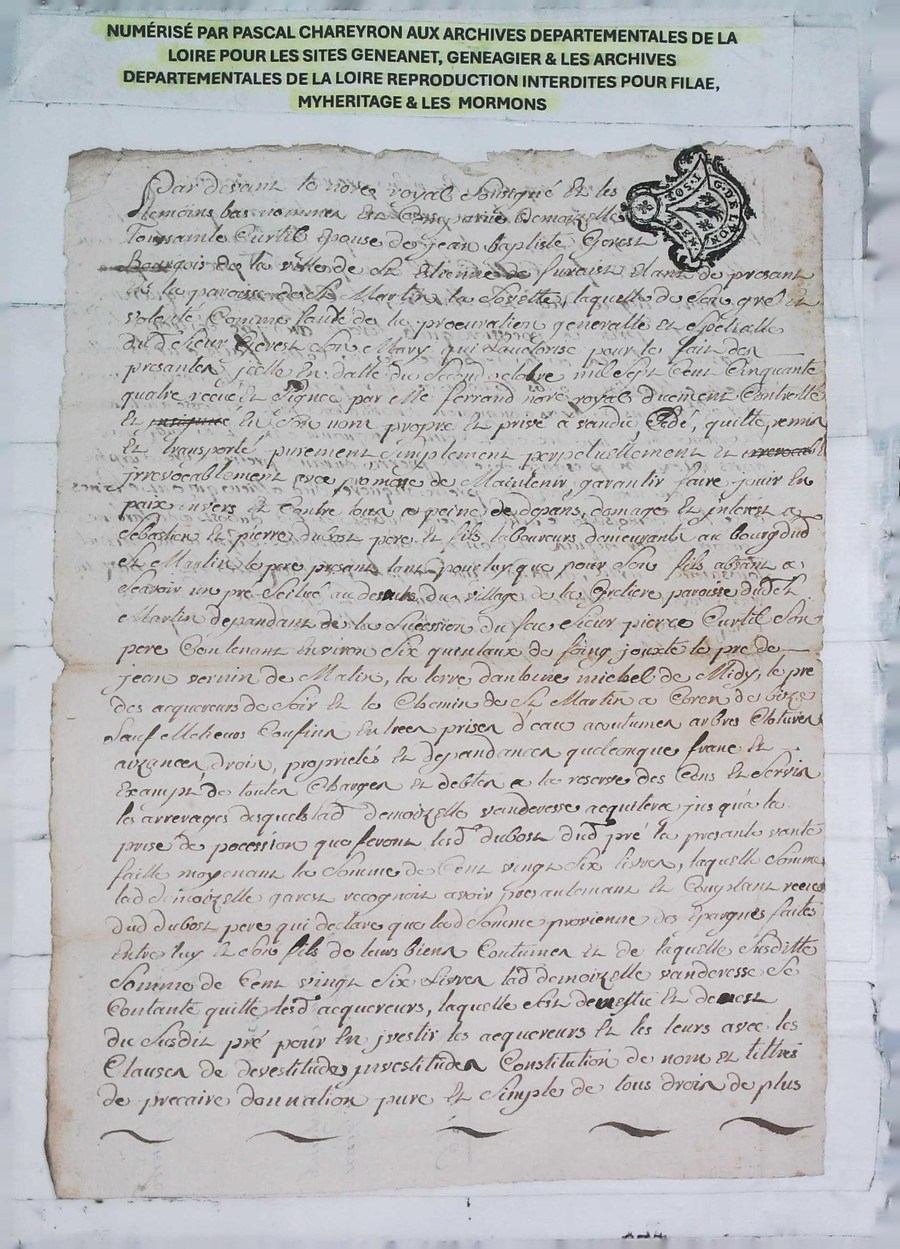 NUMÉRISÉ PAR PASCAL CHAREYRON AUX ARCHIVES DEPARTEMENTALES DE LA
LOIRE POUR LES SITES GENEANET, GENEAGIER & LES ARCHIVES
DEPARTEMENTALES DE LA LOIRE REPRODUCTION INTERDITES POUR FILAE,
MYHERITAGE & LES MORMONS
G. DE LYON
Par devant le nore royal Soussigné Et les
temoins bas nommes Est Comparüe Demoizelle
Toussainte Curtil Epouse de jean baptiste Gerest
Bourgois de la ville de St Etienne de furans Etant de presant
la paroisse de St Martin la Sovette, laquelle de Son gré et
volonté Comme fondé de la procuration generalle et Spécialle
dud Sieur Gerest Son Mary qui Lauctorise pour le fait des
presantes jcelle En datte du Second octobre mil sept Cent Cinquante
quatre recue Et Signée par Me ferrand nore royal düement Controllé
Et insignué En Son nom propre Et privé a vandu, Cédé, quitté, remis
Et transporté purement Simplement perpetuellement Et irrevocabl
jrrevocablement avec promesse de Maintenir, garantir faire jouir En
paix envers Et Contre tous a peine de depans, domage Et interest a
Sebastien Et pierre dubost pere Et fils laboureurs demeurants au bourg dud
St Martin le pere presant tant pour luy que pour Son fils absant a
Scavoir un pre Scitué au dessus du village de la Greliere paroisse dud St
Martin dependant de la Sucession du feu Sieur pierre Curtil Son
pere Contenant Environ Six quintaux de foing jouxte le pre de
jean vernin de Matin, la terre danthoine michel de Midy, le pre
des acquereurs de Soir Et le Chemin de St Martin a Coren de bize
Sauf Meilieurs Confins Entrees prises d'eau acoutumes arbres Clotures
aizances drois, proprietés Et dependances quelconque franc Et
Exampt de toutes Charges Et debtes a la reserve des Cens Et Servis
les arrerages desquels lad demoizelle vanderesse acquitera jusqu'a la
prise de pocession que feront lesd dubost dud pré la presante vante
faitte moyenant la Somme de Cent vingt Six livres, laquelle Somme
lad demoizelle gerest recognoit avoir presantemant Et Comptant receu
dud dubost pere qui declare que lad Somme provienne des Epargnes faites
Entre luy Et Son fils de leurs biens Coutumes Et de laquelle Susditte
Somme de Cent vingt Six Livres lad demoizelle vanderesse Se
Contante quitte lesd acquereurs, laquelle Sest demettüe Et demest
du Susdit pré pour En jvestir les acquereurs Et les leurs avec les
Clauses de devestitudes investitudes Constitution de nom Et tittres
de precaire donnation pure Et Simple de tous drois de plus